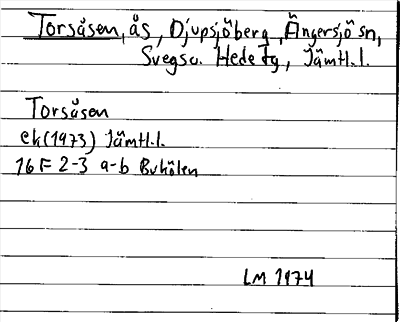 Torsåsen, ås, Djupsjöberg, Ängersjö sn,
Svegso. Hede tg, Jämtl.l.
Torsåsen
ek (1973) Jämtl.l.
16 F 2-3 a-b Buhölen
LM 1974